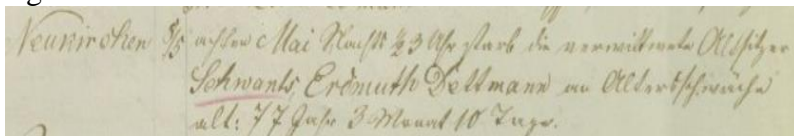 Neukirchen 8/5 achten Mai Nachts ½3 Uhr starb die verwittwete Altsitzer
Schwants, Erdmuth Dettmann an Altersschwäche
alt: 77 Jahr 3 Monat 10 Tage.